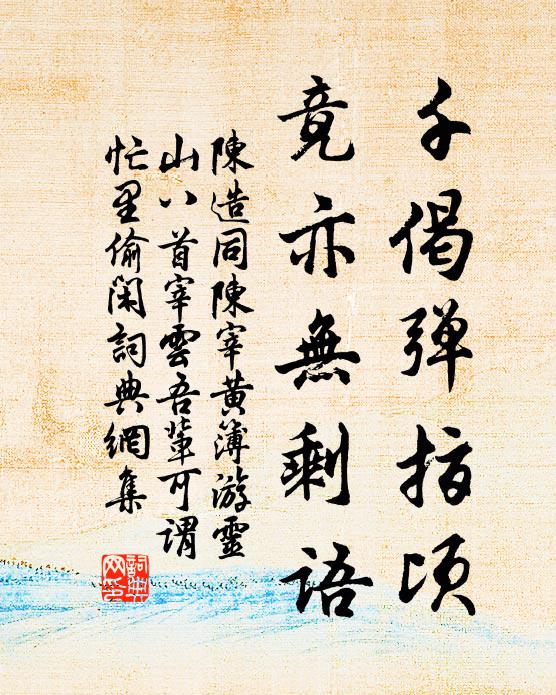 千偈弹指頃
竟亦無剩语
陳造同陳宰黄簿游靈
山八首宰雲吾輩可謂
忙里偷闲詞典網集
詞典
网印